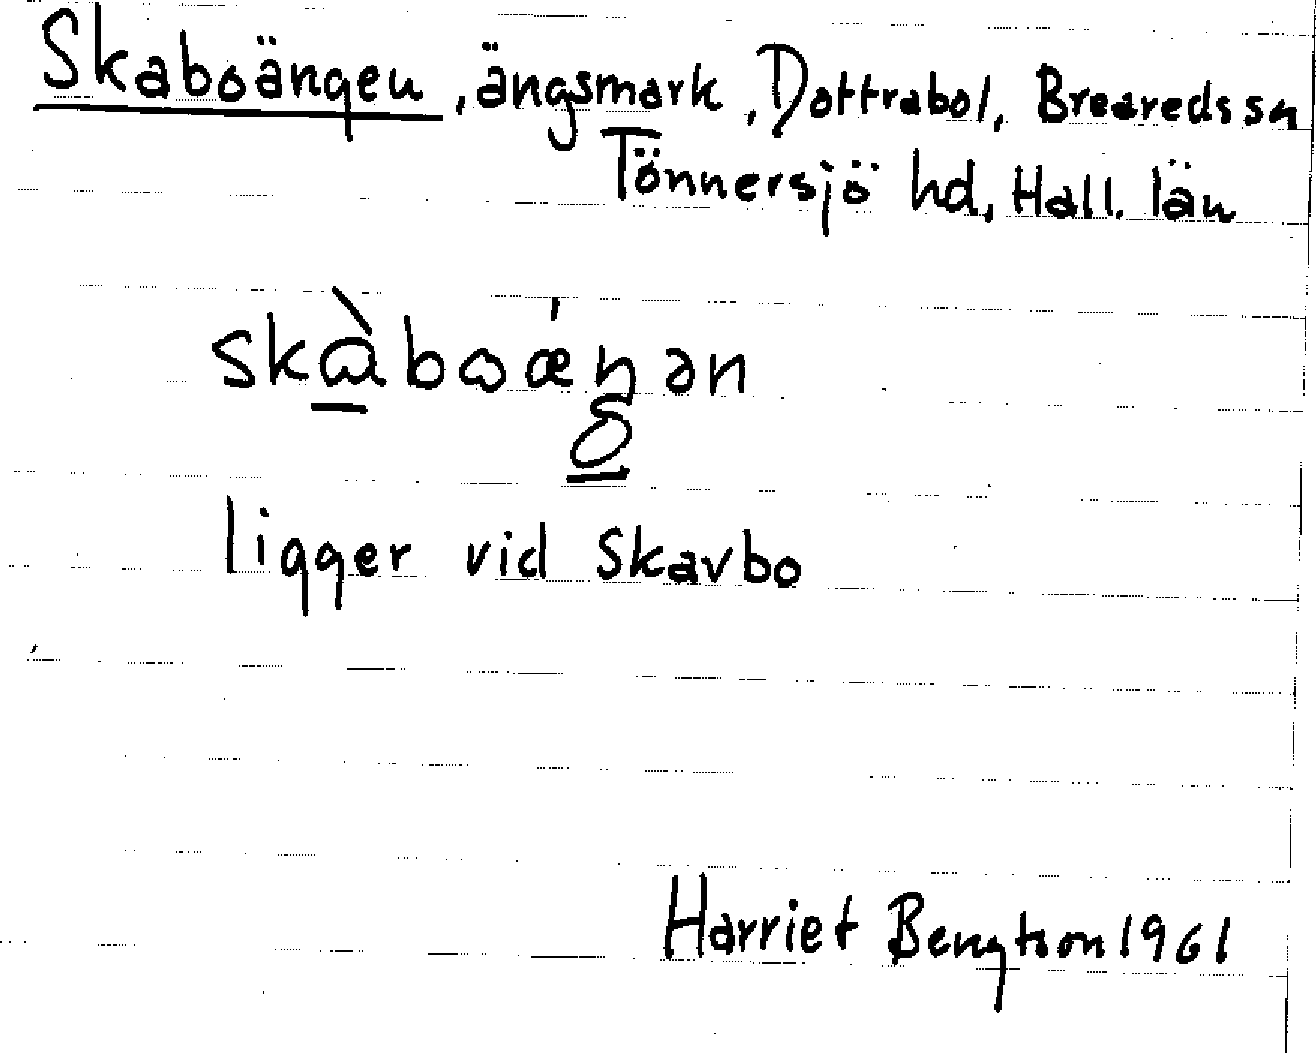 Skaboängen, ängsmark, Dottrabol, Breareds sn
Tönnersjö hd, Hall. län
ligger vid Skavbo
Harriet Bengtson 1961